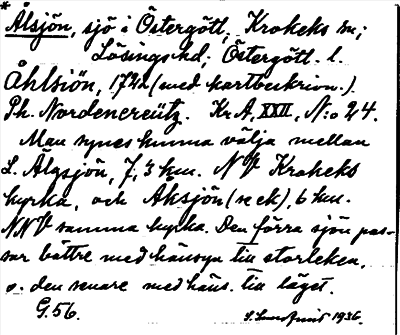 * Ålsjön, sjö i Östergötl., Krokeks sn;
Lösings hd; Östergötl. l.
Åhlsiön, 172 (med kartbeskrivn.).
Ph. Nordencreütz. Kr.A. XXII, N:o 24.
Man synes kunna välja mellan
L. Älgsjön, 7,3 km. NV Krokeks
kyrka, och Åksjön (se ek), 6 km.
NNV samma kyrka. Den förra sjön pas-
sar bättre med hänsyn till storleken,
o. den senare med häns. till läget.
G. 56.
1936.